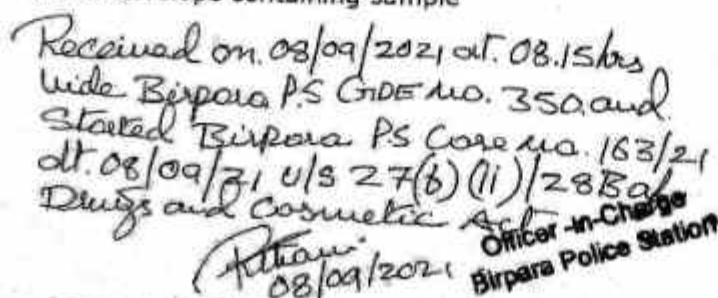 Received on 08/09/2021 at 08.15hrs
vide Birpara P.S GDE No. 350 and
Started Birpara PS Case no. 163/21
dt. 08/09/21 U/S 27(b)(ii)/28B of
Drugs and Cosmetic Act
08/09/2021
Officer-in-Charge
Birpara Police Station